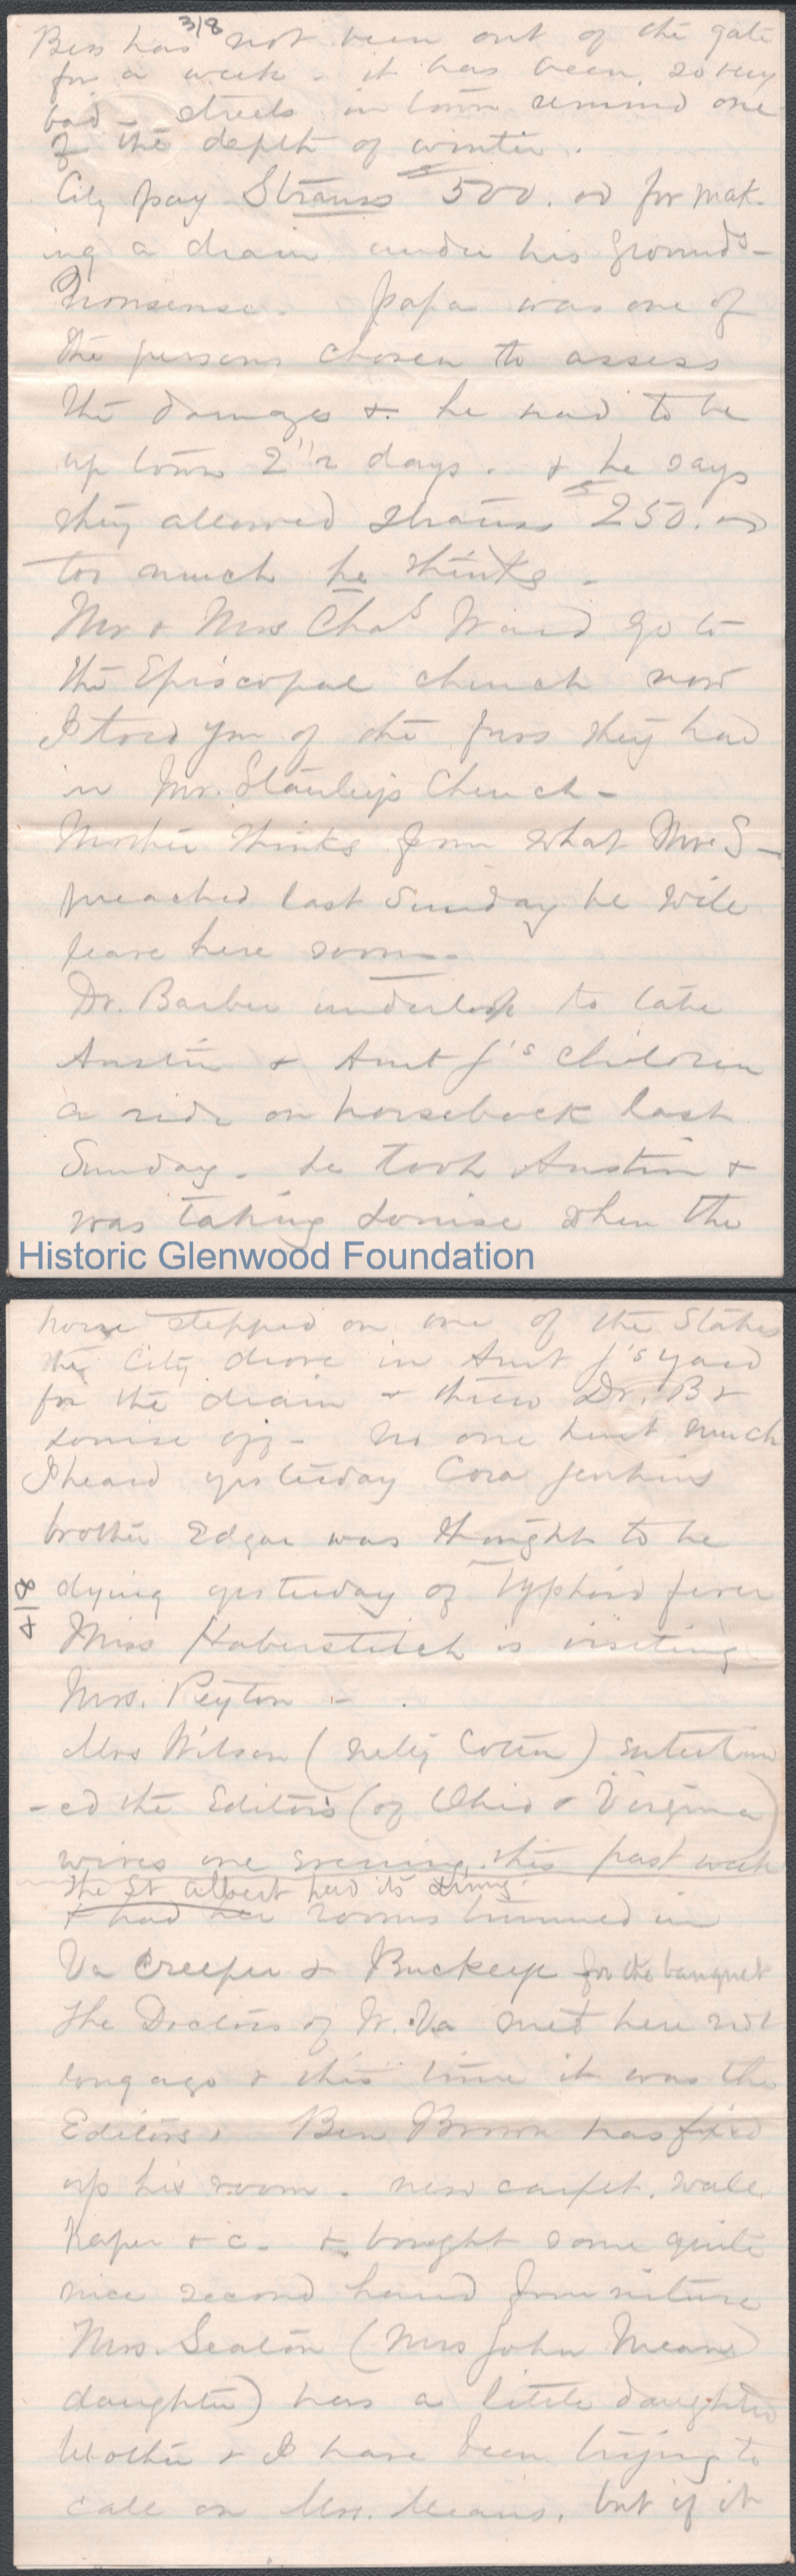 3/8
Bess has not been out of the gate
for a week - it has been so very
bad - streets in town remind one
of the depth of winter.
City pay Strauss $500.00 for mak-
ing a drain under his grounds -
Nonsense. Papa was one of
the persons chosen to assess
the damages & he had to be
up town 2 1/2 days. & he says
they allowed Strauss $250.00
too much he thinks -
Mr & Mrs Chas Ward go to
the Episcopal church now
I told you of the fuss they had
in Mr. Stanley's Church -
Mother thinks from what Mr S -
preached last Sunday he will
leave here soon -
Dr. Barber undertook to take
Austin & Aunt J's children
a ride on horseback last
Sunday. he took Austin &
was taking Louise when the
Historic Glenwood Foundation
horse stepped on one of the Stakes
the City drove in Aunt J's yard
for the drain & threw Dr. B &
Louise off - no one hurt much
I heard yesterday Cora Jenkins
brother Edgar was thought to be
dying yesterday of Typhoid fever
4/8
Miss Haberstitch is visiting
Mrs. Peyton -
Mrs Wilson (Nelly Cotton) entertain
-ed the Editors (of Ohio & Virginia)
wives one evening this past week
The St Albert had its dining
& had her rooms trimmed in
Va Creeper & Buckeye for the banquet
The Doctors of W. Va met here not
long ago & this time it was the
Editors. Ben Brown has fixed
up his room - new carpet, wall
paper & c. & bought some quite
nice second hand furniture
Mrs. Seaton (Mrs John Means
daughter) has a little daughter
Mother & I have been trying to
call on Mrs. Means, but if it